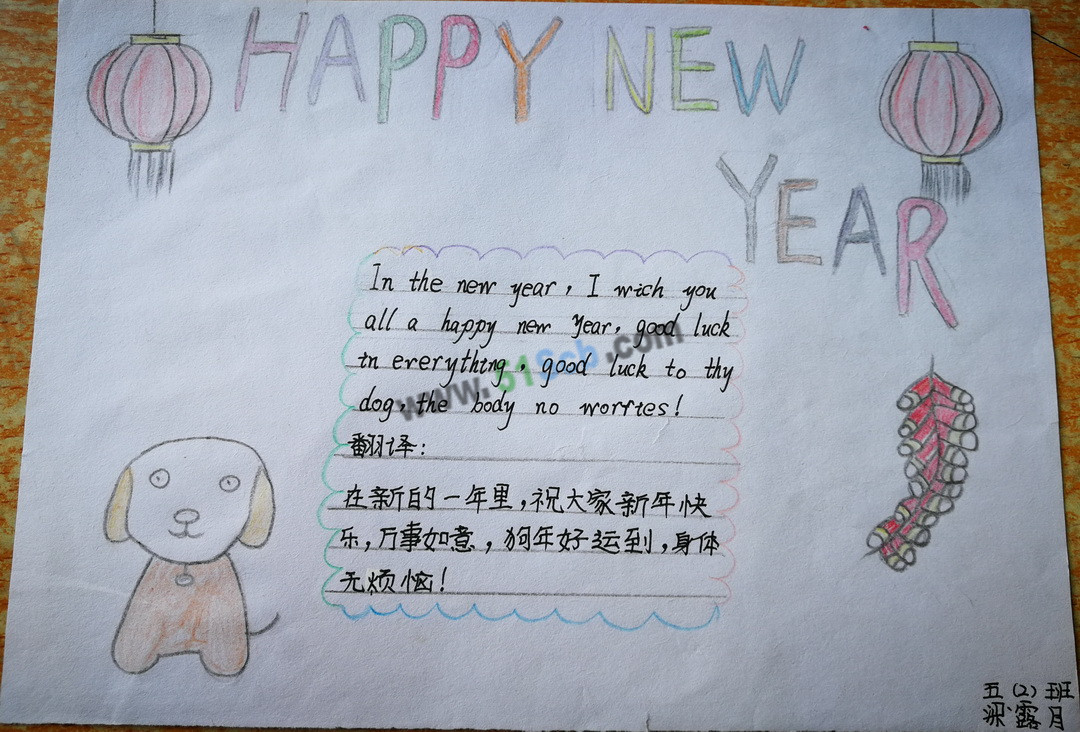 HAPPY NEW
YEAR
In the new year, I wich you
all a happy new Year, good luck
in everything, good luck to thy
dog, the body no worries!
翻译:
在新的一年里,祝大家新年快
乐,万事如意,狗年好运到,身体
无烦恼!
www.51Scb.com
五(2)班
露月